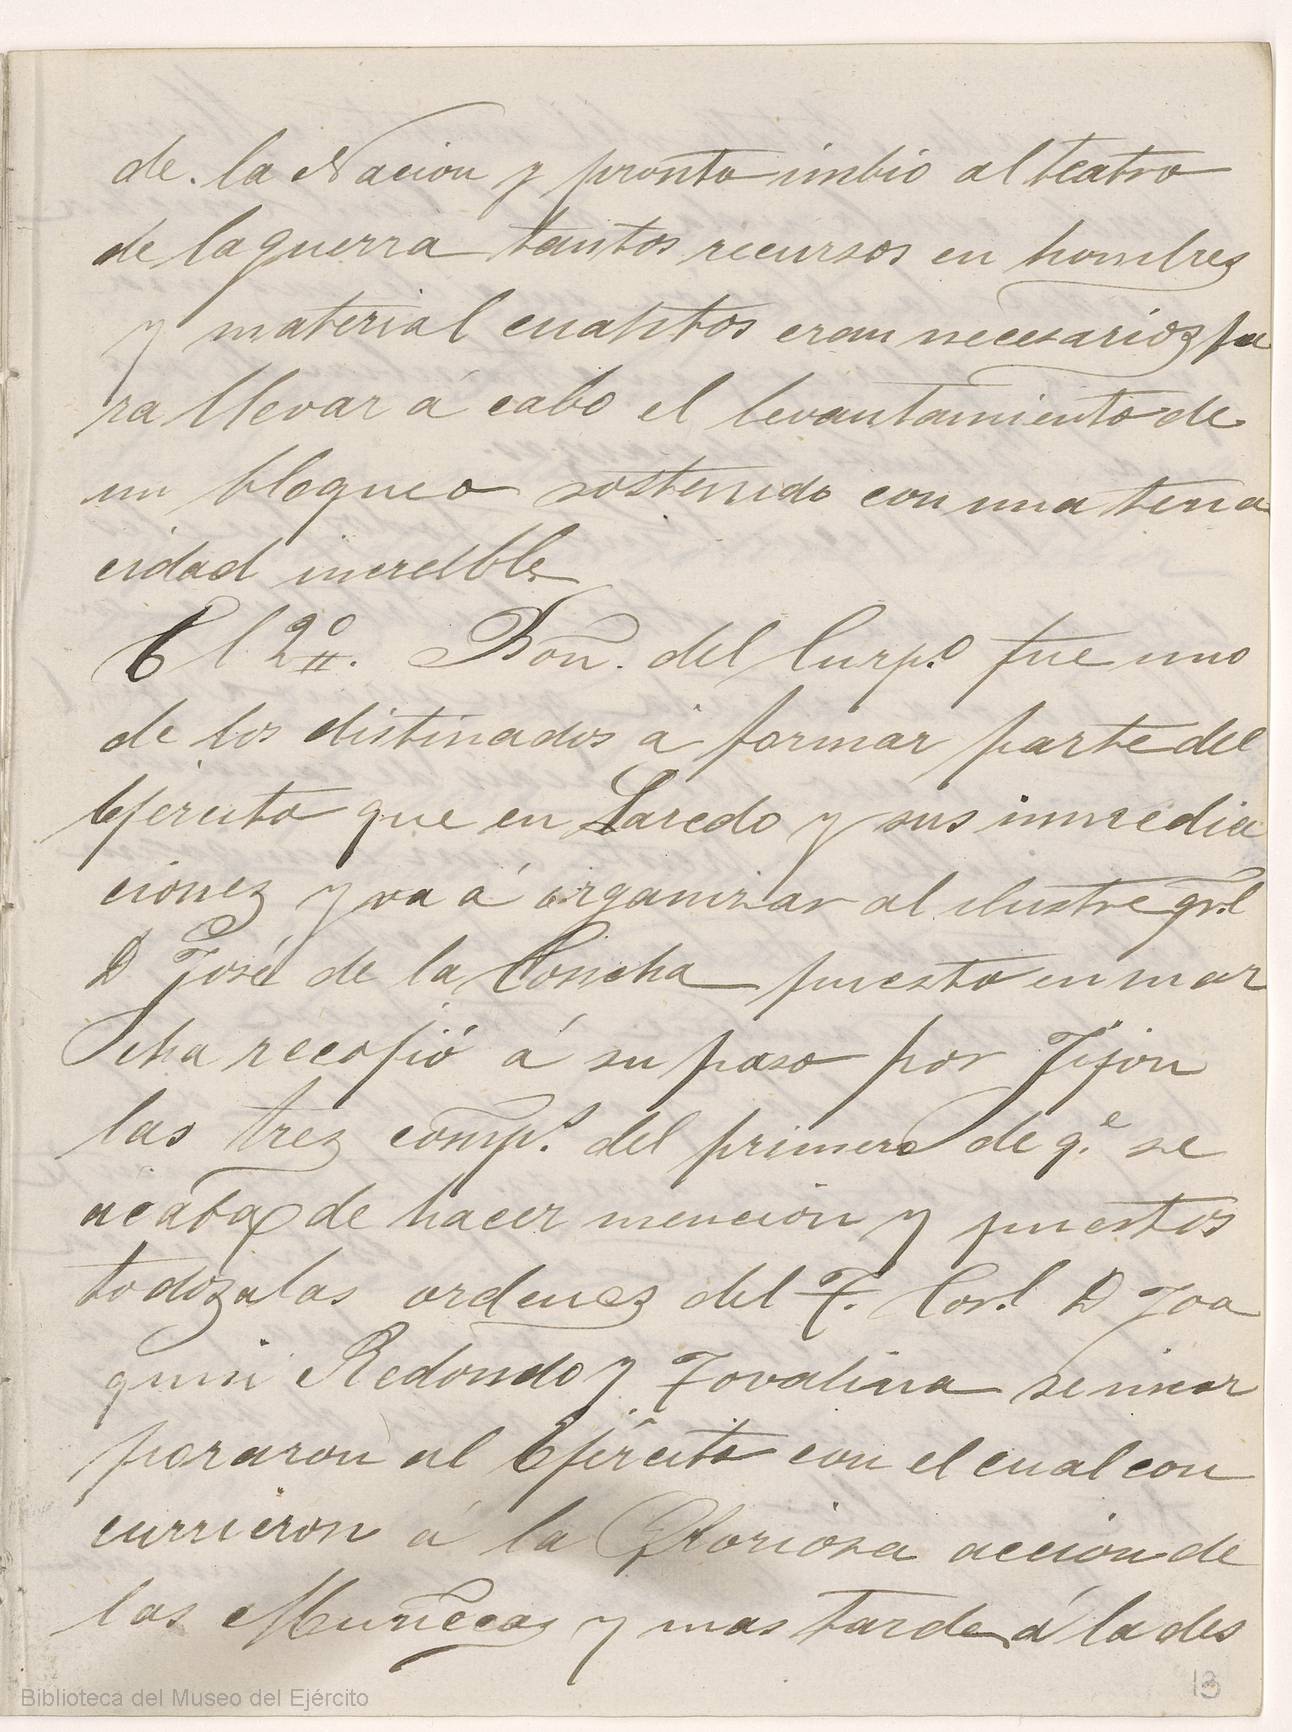 de la Nacion y pronto imbió al teatro
de la guerra tantos recursos en hombres
y material cuantos eran necesarios pa
ra llevar á cabo el levantamiento de
un bloqueo sostenido con una tena
cidad increible
El 2º. Bon. del Cuerpº fue uno
de los distinados á formar parte del
Ejército que en Laredo y sus inmedia
ciones y va á organizar al ilustre gral
D José de la Concha puesto en mar
cha recojió á su paso por Jijon
las tres comps. del primero de q.e se
acaba de hacer mencion y puestos
todos a las ordenes del T. Corl. D Joa
quin Redondo y Tovalina se incor
poraron al Ejército con el cual con
currieron á la Gloriosa accion de
las Muñecas y mas tarde á la des
13
Biblioteca del Museo del Ejército